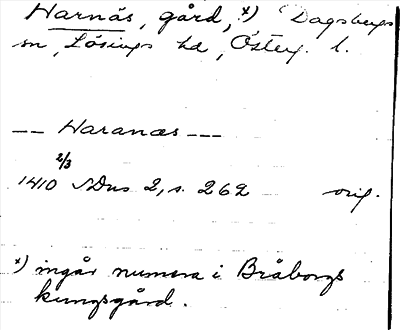 Harnäs, gård, x) Dagsbergs
sn, Lösings hd, Österg. l.
-- Haranæs ---
1410 2/3 SDns 2, s. 262 orig.
x) ingår numera i Bråborgs
kungsgård.